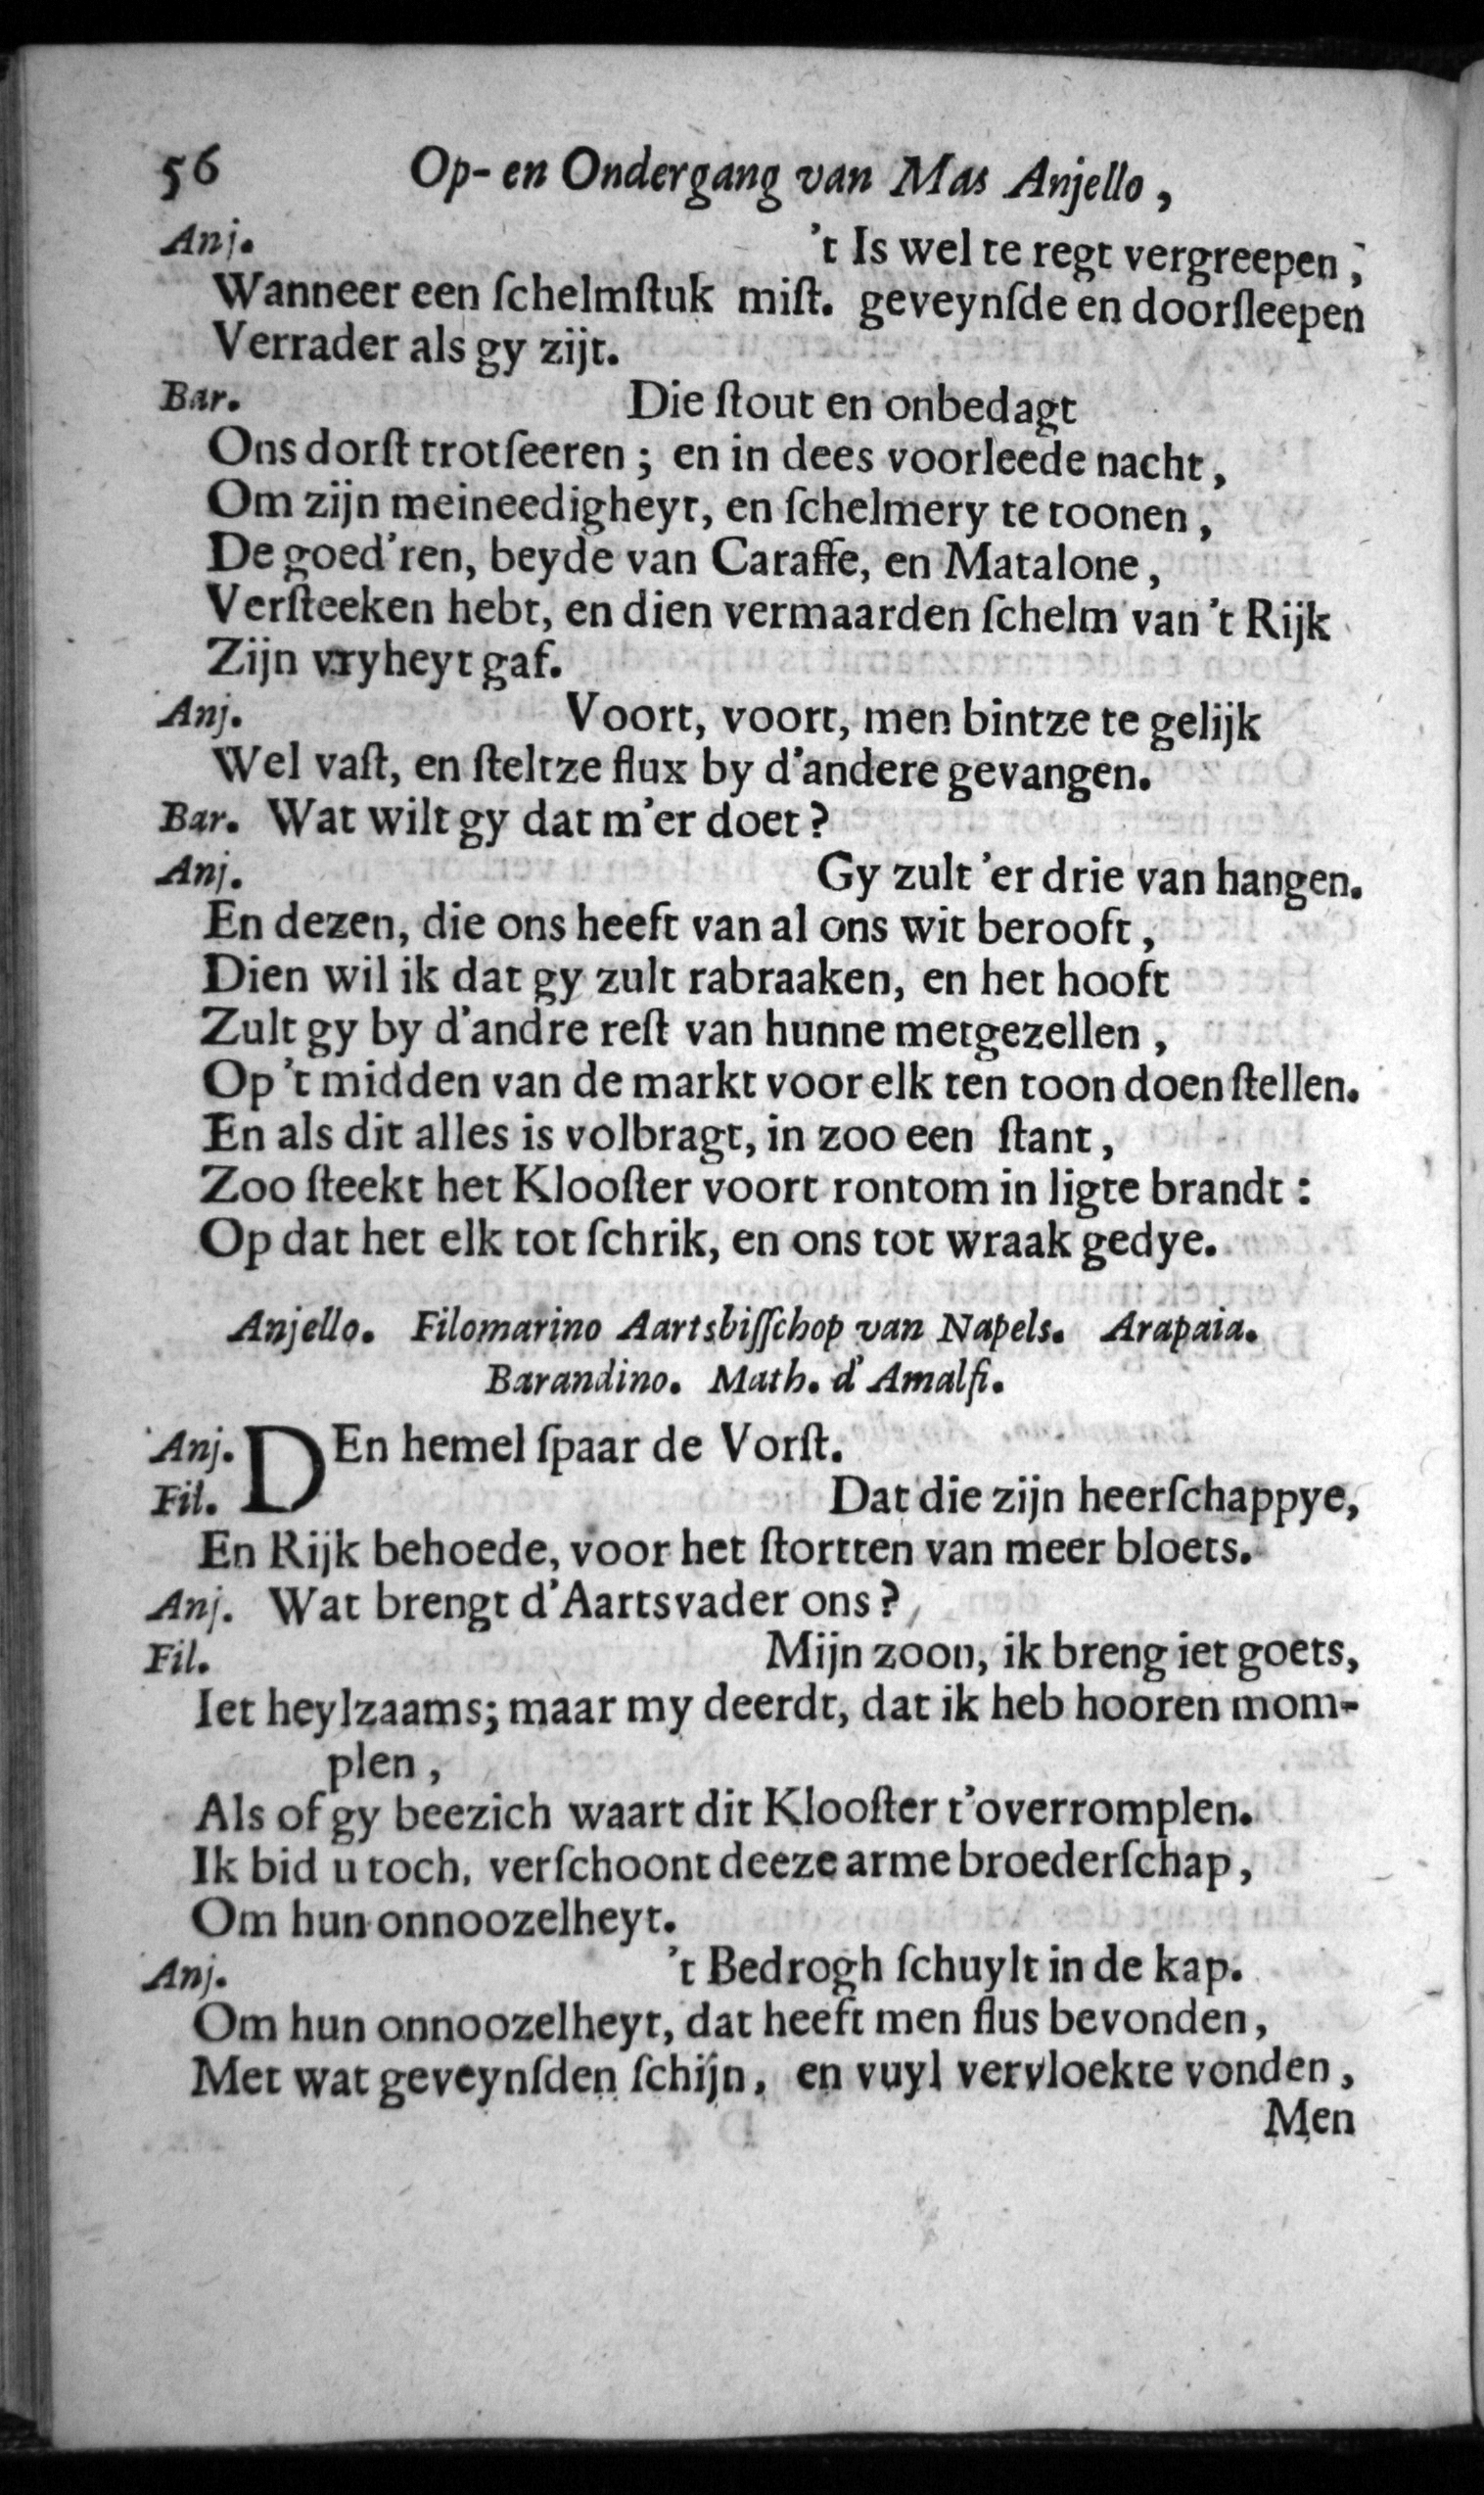 56 Op- en Ondergang van Mas Anjello,
Anj. 't Is wel te regt vergreepen,
Wanneer een ſchelmſtuk miſt. geveynſde en doorſleepen
Verrader als gy zijt.
Bar. Die ſtout en onbedagt
Ons dorſt trotſeeren; en in dees voorleede nacht,
Om zijn meineedigheyt, en ſchelmery te toonen,
De goed'ren, beyde van Caraffe, en Matalone,
Verſteeken hebt, en dien vermaarden ſchelm van 't Rijk
Zijn vryheyt gaf.
Anj. Voort, voort, men bintze te gelijk
Wel vaſt, en ſteltze flux by d'andere gevangen.
Bar. Wat wilt gy dat m'er doet?
Anj. Gy zult 'er drie van hangen.
En dezen, die ons heeft van al ons wit berooft,
Dien wil ik dat gy zult rabraaken, en het hooft
Zult gy by d'andre reſt van hunne metgezellen,
Op 't midden van de markt voor elk ten toon doen ſtellen.
En als dit alles is volbragt, in zoo een ſtant,
Zoo ſteekt het Klooſter voort rontom in ligte brandt:
Op dat het elk tot ſchrik, en ons tot wraak gedye.
Anjello. Filomarino Aartsbiſſchop van Napels. Arapaia.
Barandino. Math. d'Amalfi.
Anj. DEn hemel ſpaar de Vorſt.
Fil. Dat die zijn heerſchappye,
En Rijk behoede, voor het ſtortten van meer bloets.
Anj. Wat brengt d'Aartsvader ons?
Fil. Mijn zoon, ik breng iet goets,
Iet heylzaams; maar my deerdt, dat ik heb hooren mom-
plen,
Als of gy beezich waart dit Klooſter t'overromplen.
Ik bid u toch, verſchoont deeze arme broederſchap,
Om hun onnoozelheyt.
Anj. 't Bedrogh ſchuylt in de kap.
Om hun onnoozelheyt, dat heeft men flus bevonden,
Met wat geveynſden ſchijn, en vuyl vervloekte vonden,
Men